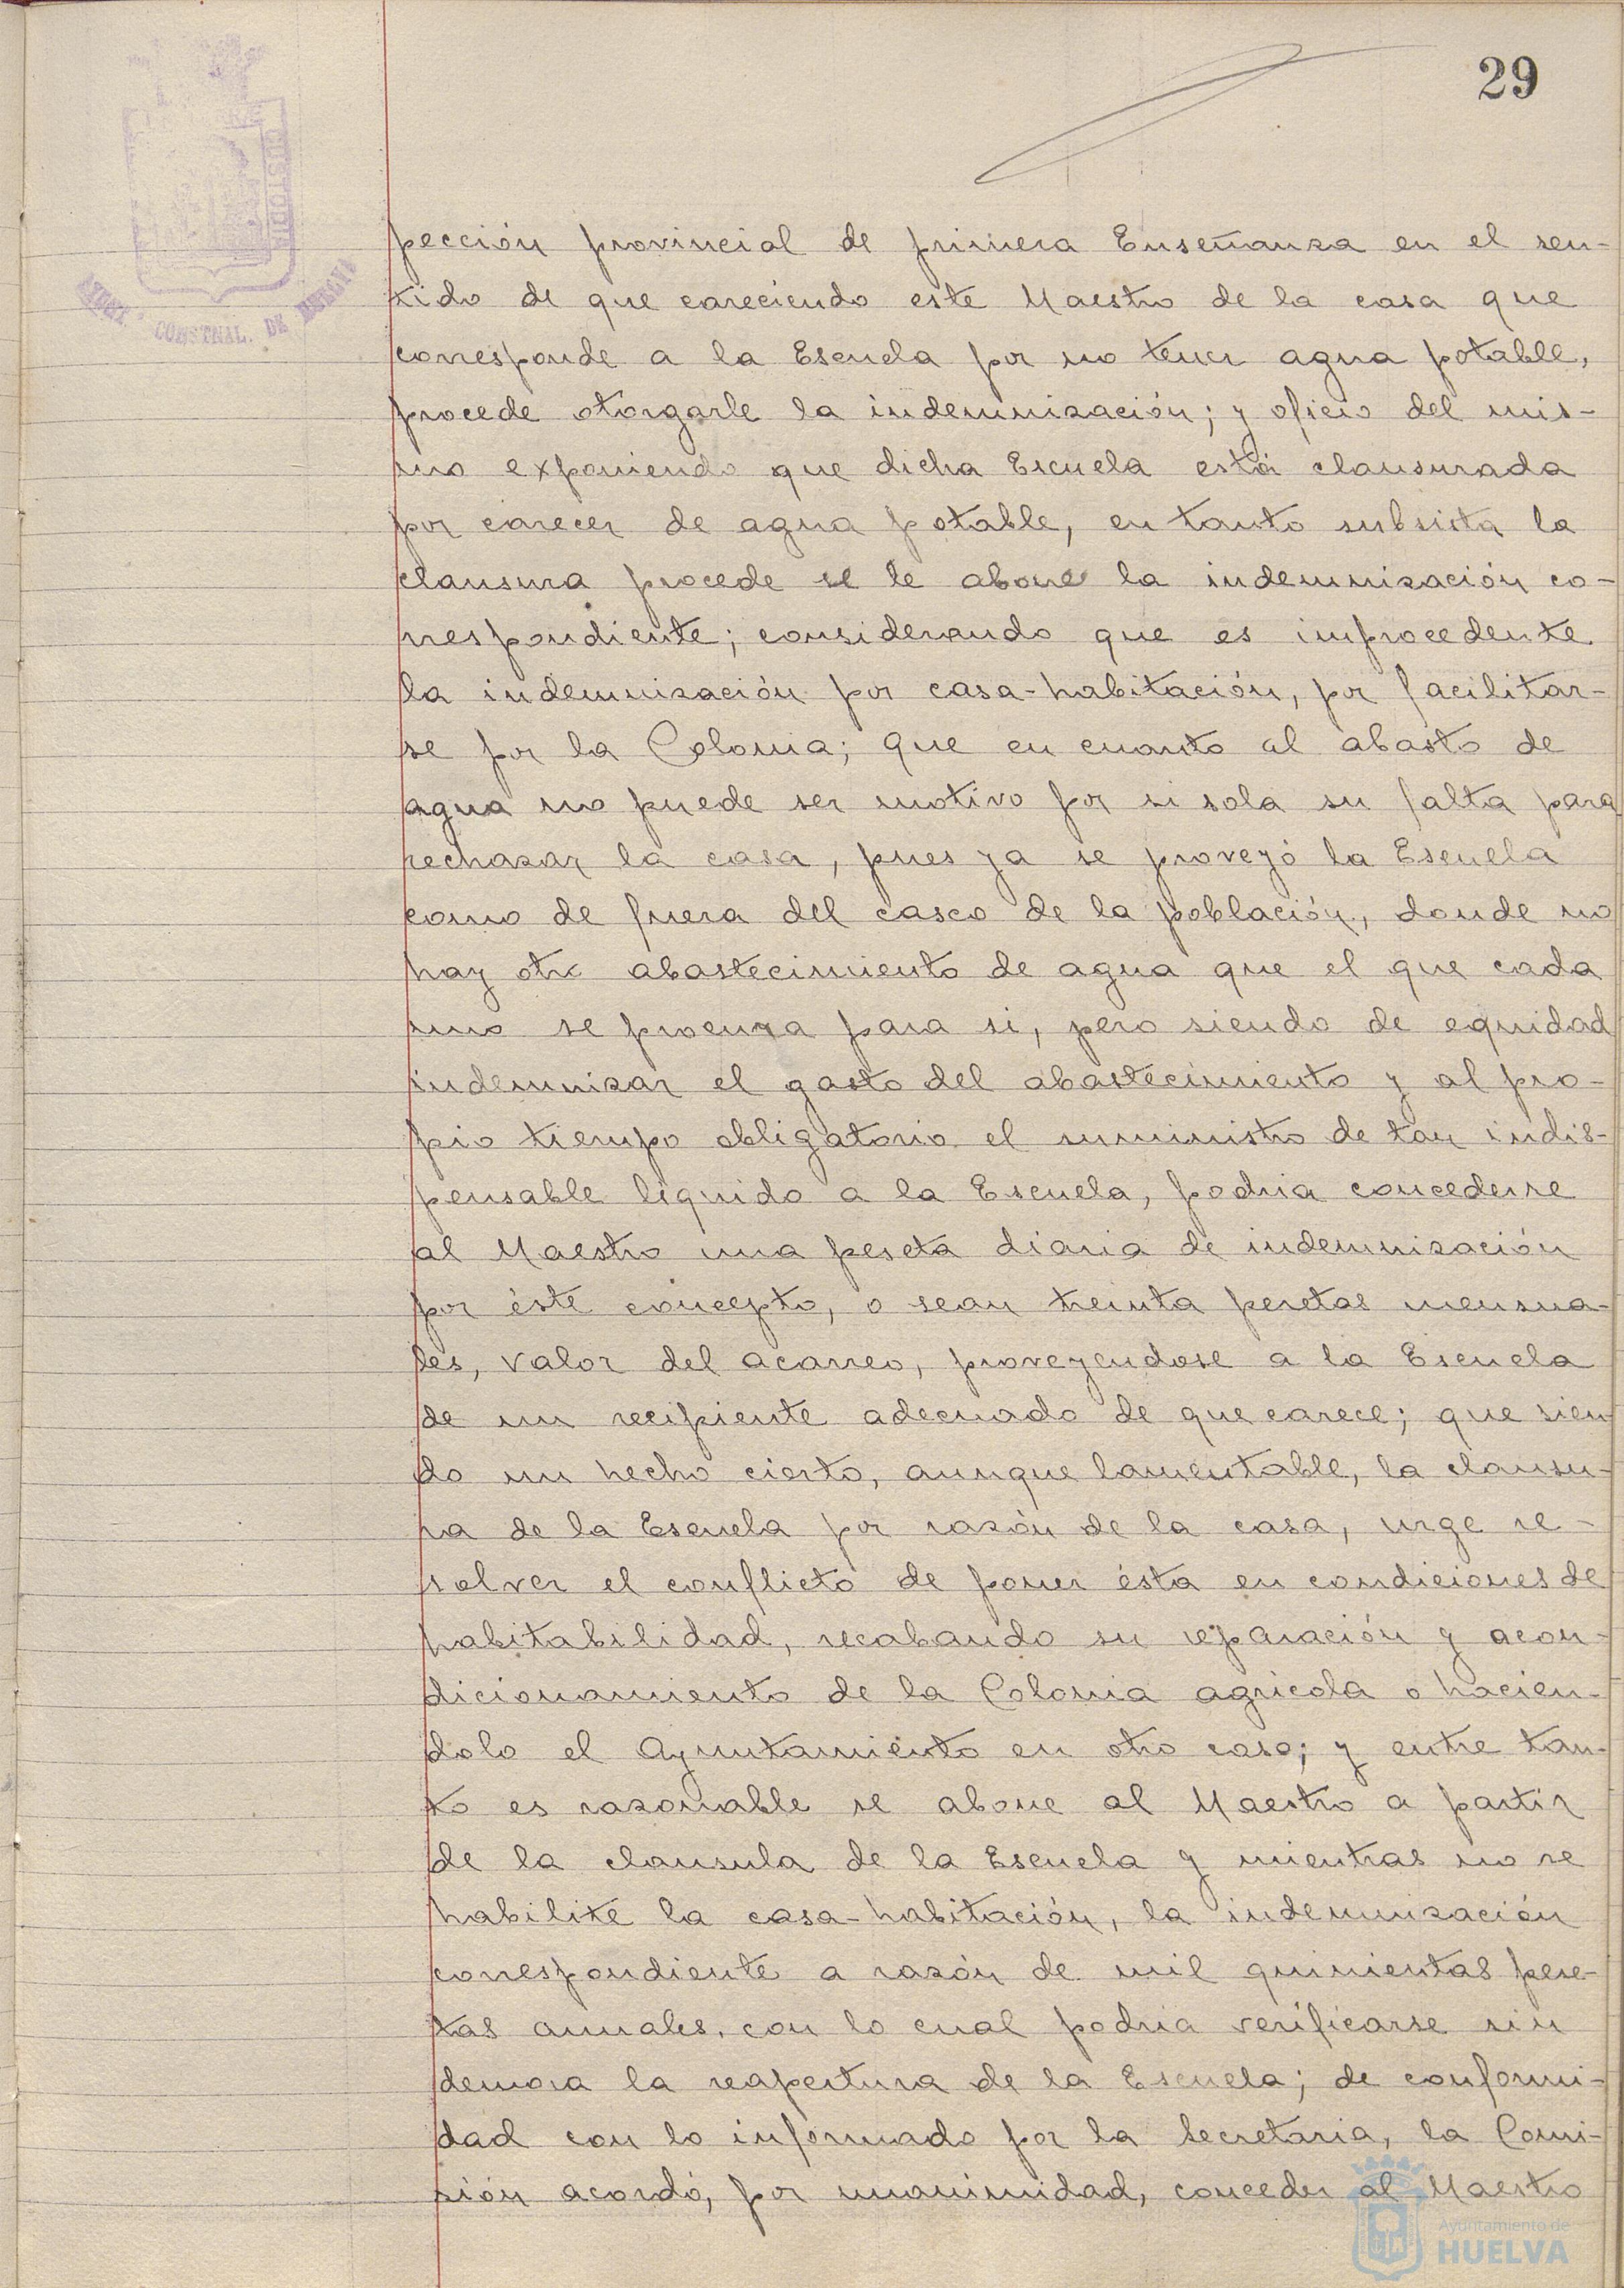 29
CUSTODIA
CONSTNAL. DE HUELVA
pección provincial de primera Enseñanza en el sen-
tido de que careciendo este Maestro de la casa que
corresponde a la Escuela por no tener agua potable,
procede otorgarle la indemnización; y oficio del mis-
mo exponiendo que dicha Escuela está clausurada
por carecer de agua potable, en tanto subsista la
clausura procede se le abone la indemnización co-
rrespondiente; considerando que es improcedente
la indemnización por casa-habitación, por facilitar-
se por la Colonia; que en cuanto al abasto de
agua no puede ser motivo por si sola su falta para
rechazar la casa, pues ya se proveyó la Escuela
como de fuera del casco de la población, donde no
hay otro abastecimiento de agua que el que cada
uno se procura para si, pero siendo de equidad
indemnizar el gasto del abastecimiento y al pro-
pio tiempo obligatorio el suministro de tan indis-
pensable líquido a la Escuela, podria concederse
al Maestro una peseta diaria de indemnización
por éste concepto, o sean treinta pesetas mensua-
les, valor del acarreo, proveyendose a la Escuela
de un recipiente adecuado de que carece; que sien-
do un hecho cierto, aunque lamentable, la clausu-
ra de la Escuela por razón de la casa, urge re-
solver el conflicto de poner ésta en condiciones de
habitabilidad, recabando su reparación y acon-
dicionamiento de la Colonia agricola o hacien-
dolo el Ayuntamiento en otro caso; y entre tan-
to es razonable se abone al Maestro a partir
de la clausula de la Escuela y mientras no se
habilite la casa-habitación, la indemnización
correspondiente a razón de mil quinientas pese-
tas anuales, con lo cual podria verificarse sin
demora la reapertura de la Escuela; de conformi-
dad con lo informado por la Secretaria, la Comi-
sión acordó, por unanimidad, conceder al Maestro
Ayuntamiento de
HUELVA